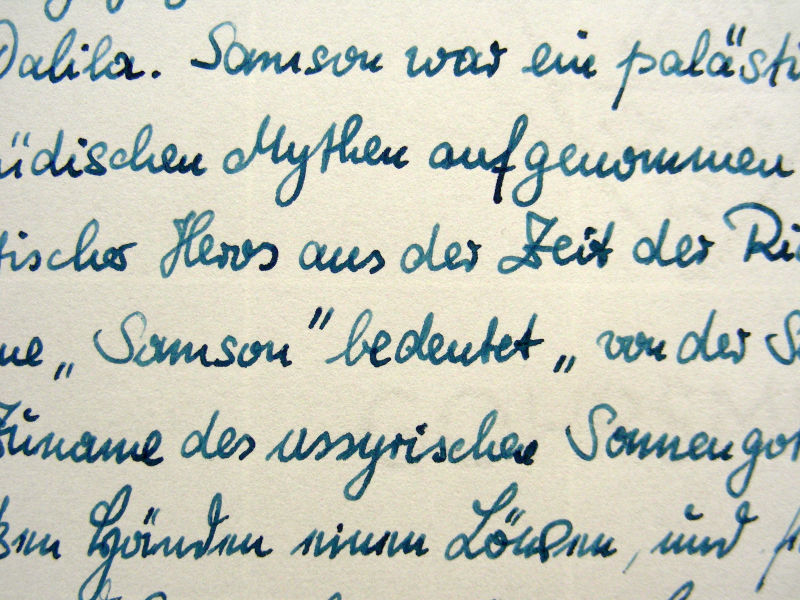 Dalila. Samson war ein palästi
üdischen Mythen aufgenommen
tischer Heros aus der Zeit der Ri
me „Samson" bedeutet „von der S
Zuname des assyrischen Sonnengot
ßen Händen einen Löwen, und